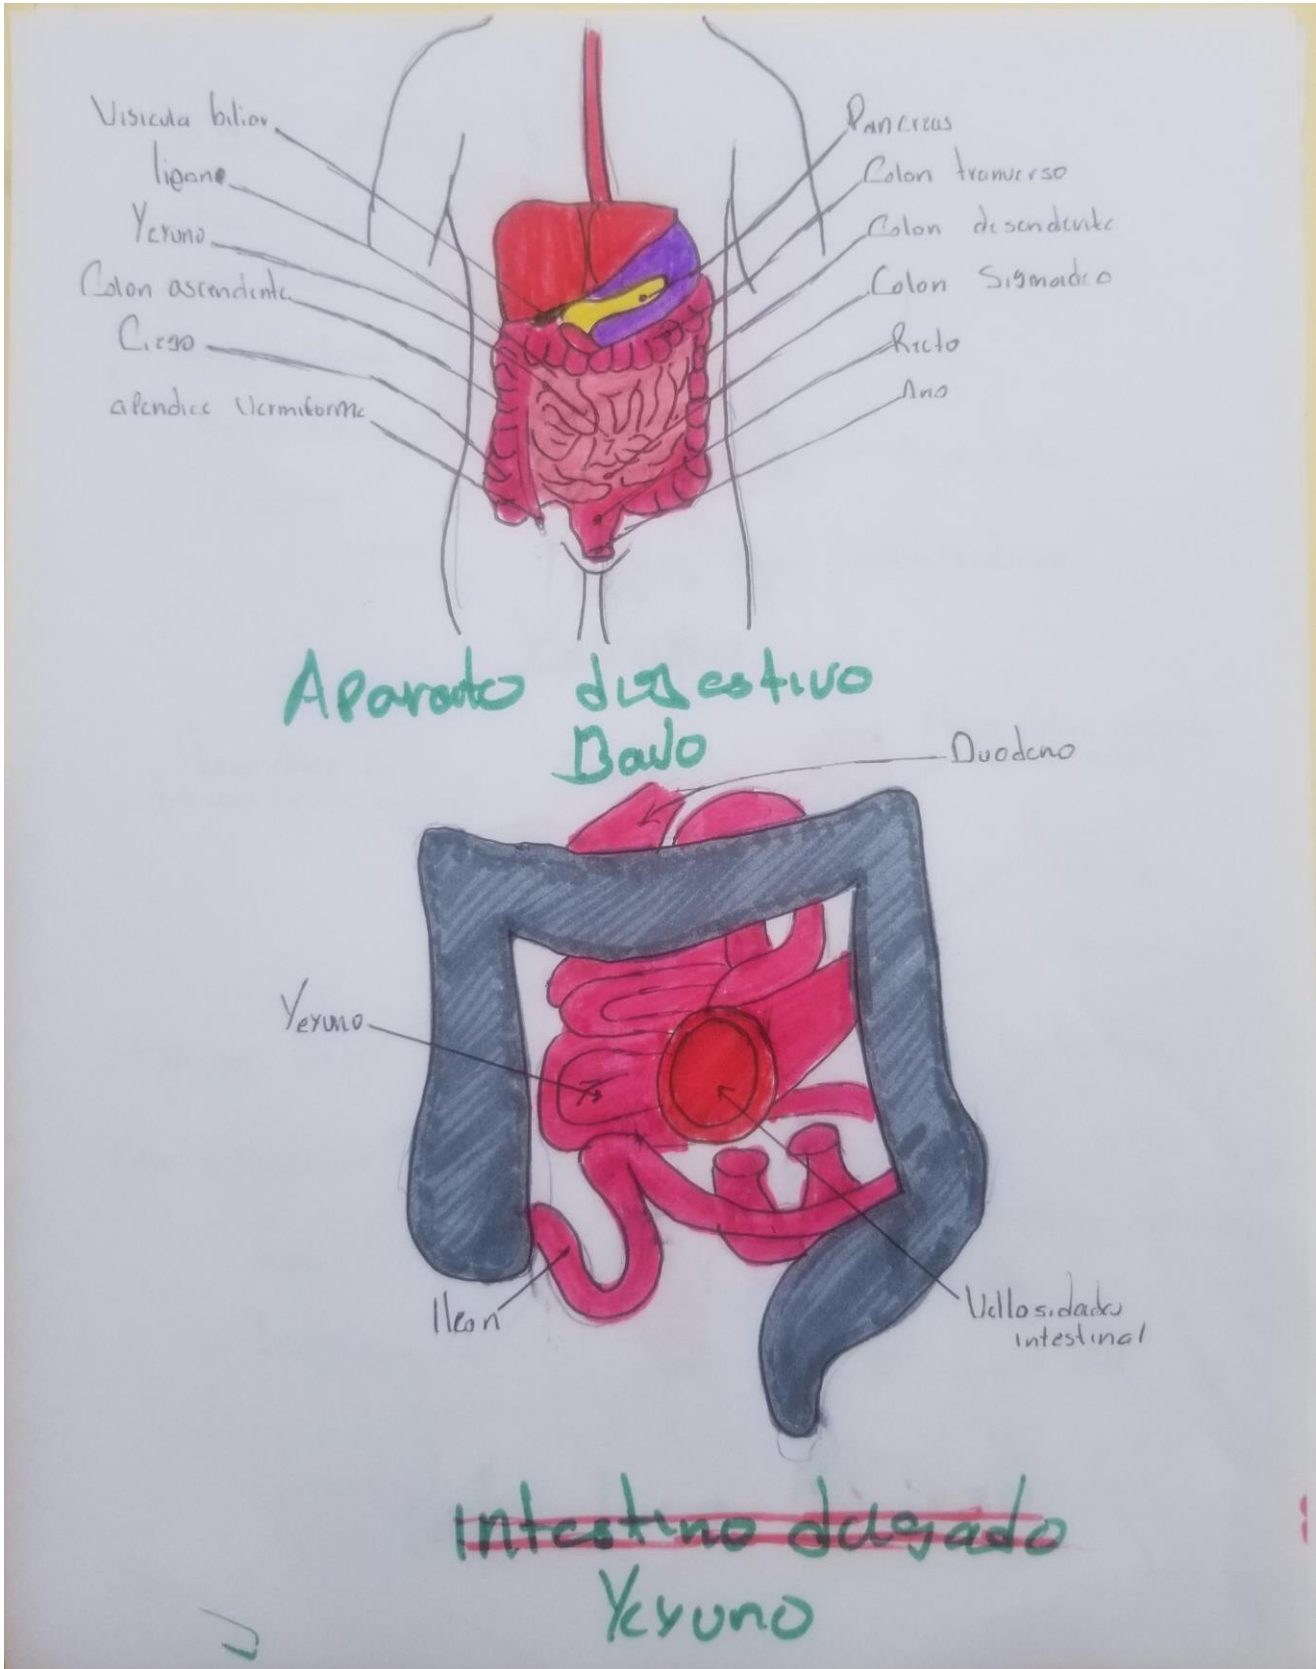 Visicula biliar
ligano
Yeyuno
Colon ascendente
Ciego
apendice Vermiforme
Pancreas
Colon tranverso
Colon desendente
Colon Sigmoideo
Recto
Ano
Aparato digestivo
Bajo
Duodeno
Yeyuno
Ileon
Vellosidades
intestinal
Intestino delgado
Yeyuno